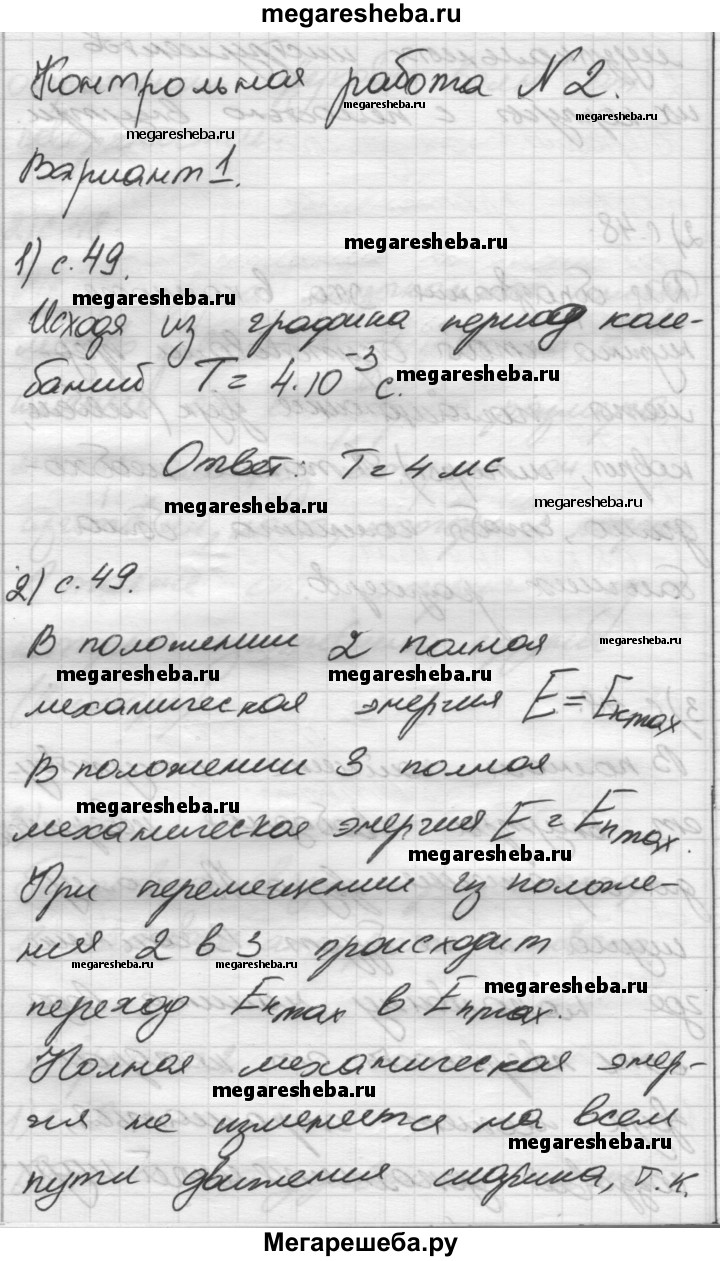 megaresheba.ru
Контрольная работа N2.
megaresheba.ru
megaresheba.ru
megaresheba.ru
Вариант 1.
megaresheba.ru
1) с.49.
megaresheba.ru
Исходя из графика период коле-
баний T = 4·10⁻³ с.
megaresheba.ru
Ответ: T = 4 мс
megaresheba.ru
megaresheba.ru
2) с.49.
В положении 2 полная
megaresheba.ru
megaresheba.ru
megaresheba.ru
механическая энергия E = Eкmax
В положении 3 полная
megaresheba.ru
механическая энергия E = Eпmax.
megaresheba.ru
При перемещении из положе-
ния 2 в 3 происходит
megaresheba.ru
megaresheba.ru
megaresheba.ru
переход Eкmax в Eпmax.
Полная механическая энер-
megaresheba.ru
гия не изменяется на всем
megaresheba.ru
пути движения шарика, т.к.
Мегарешеба.ру